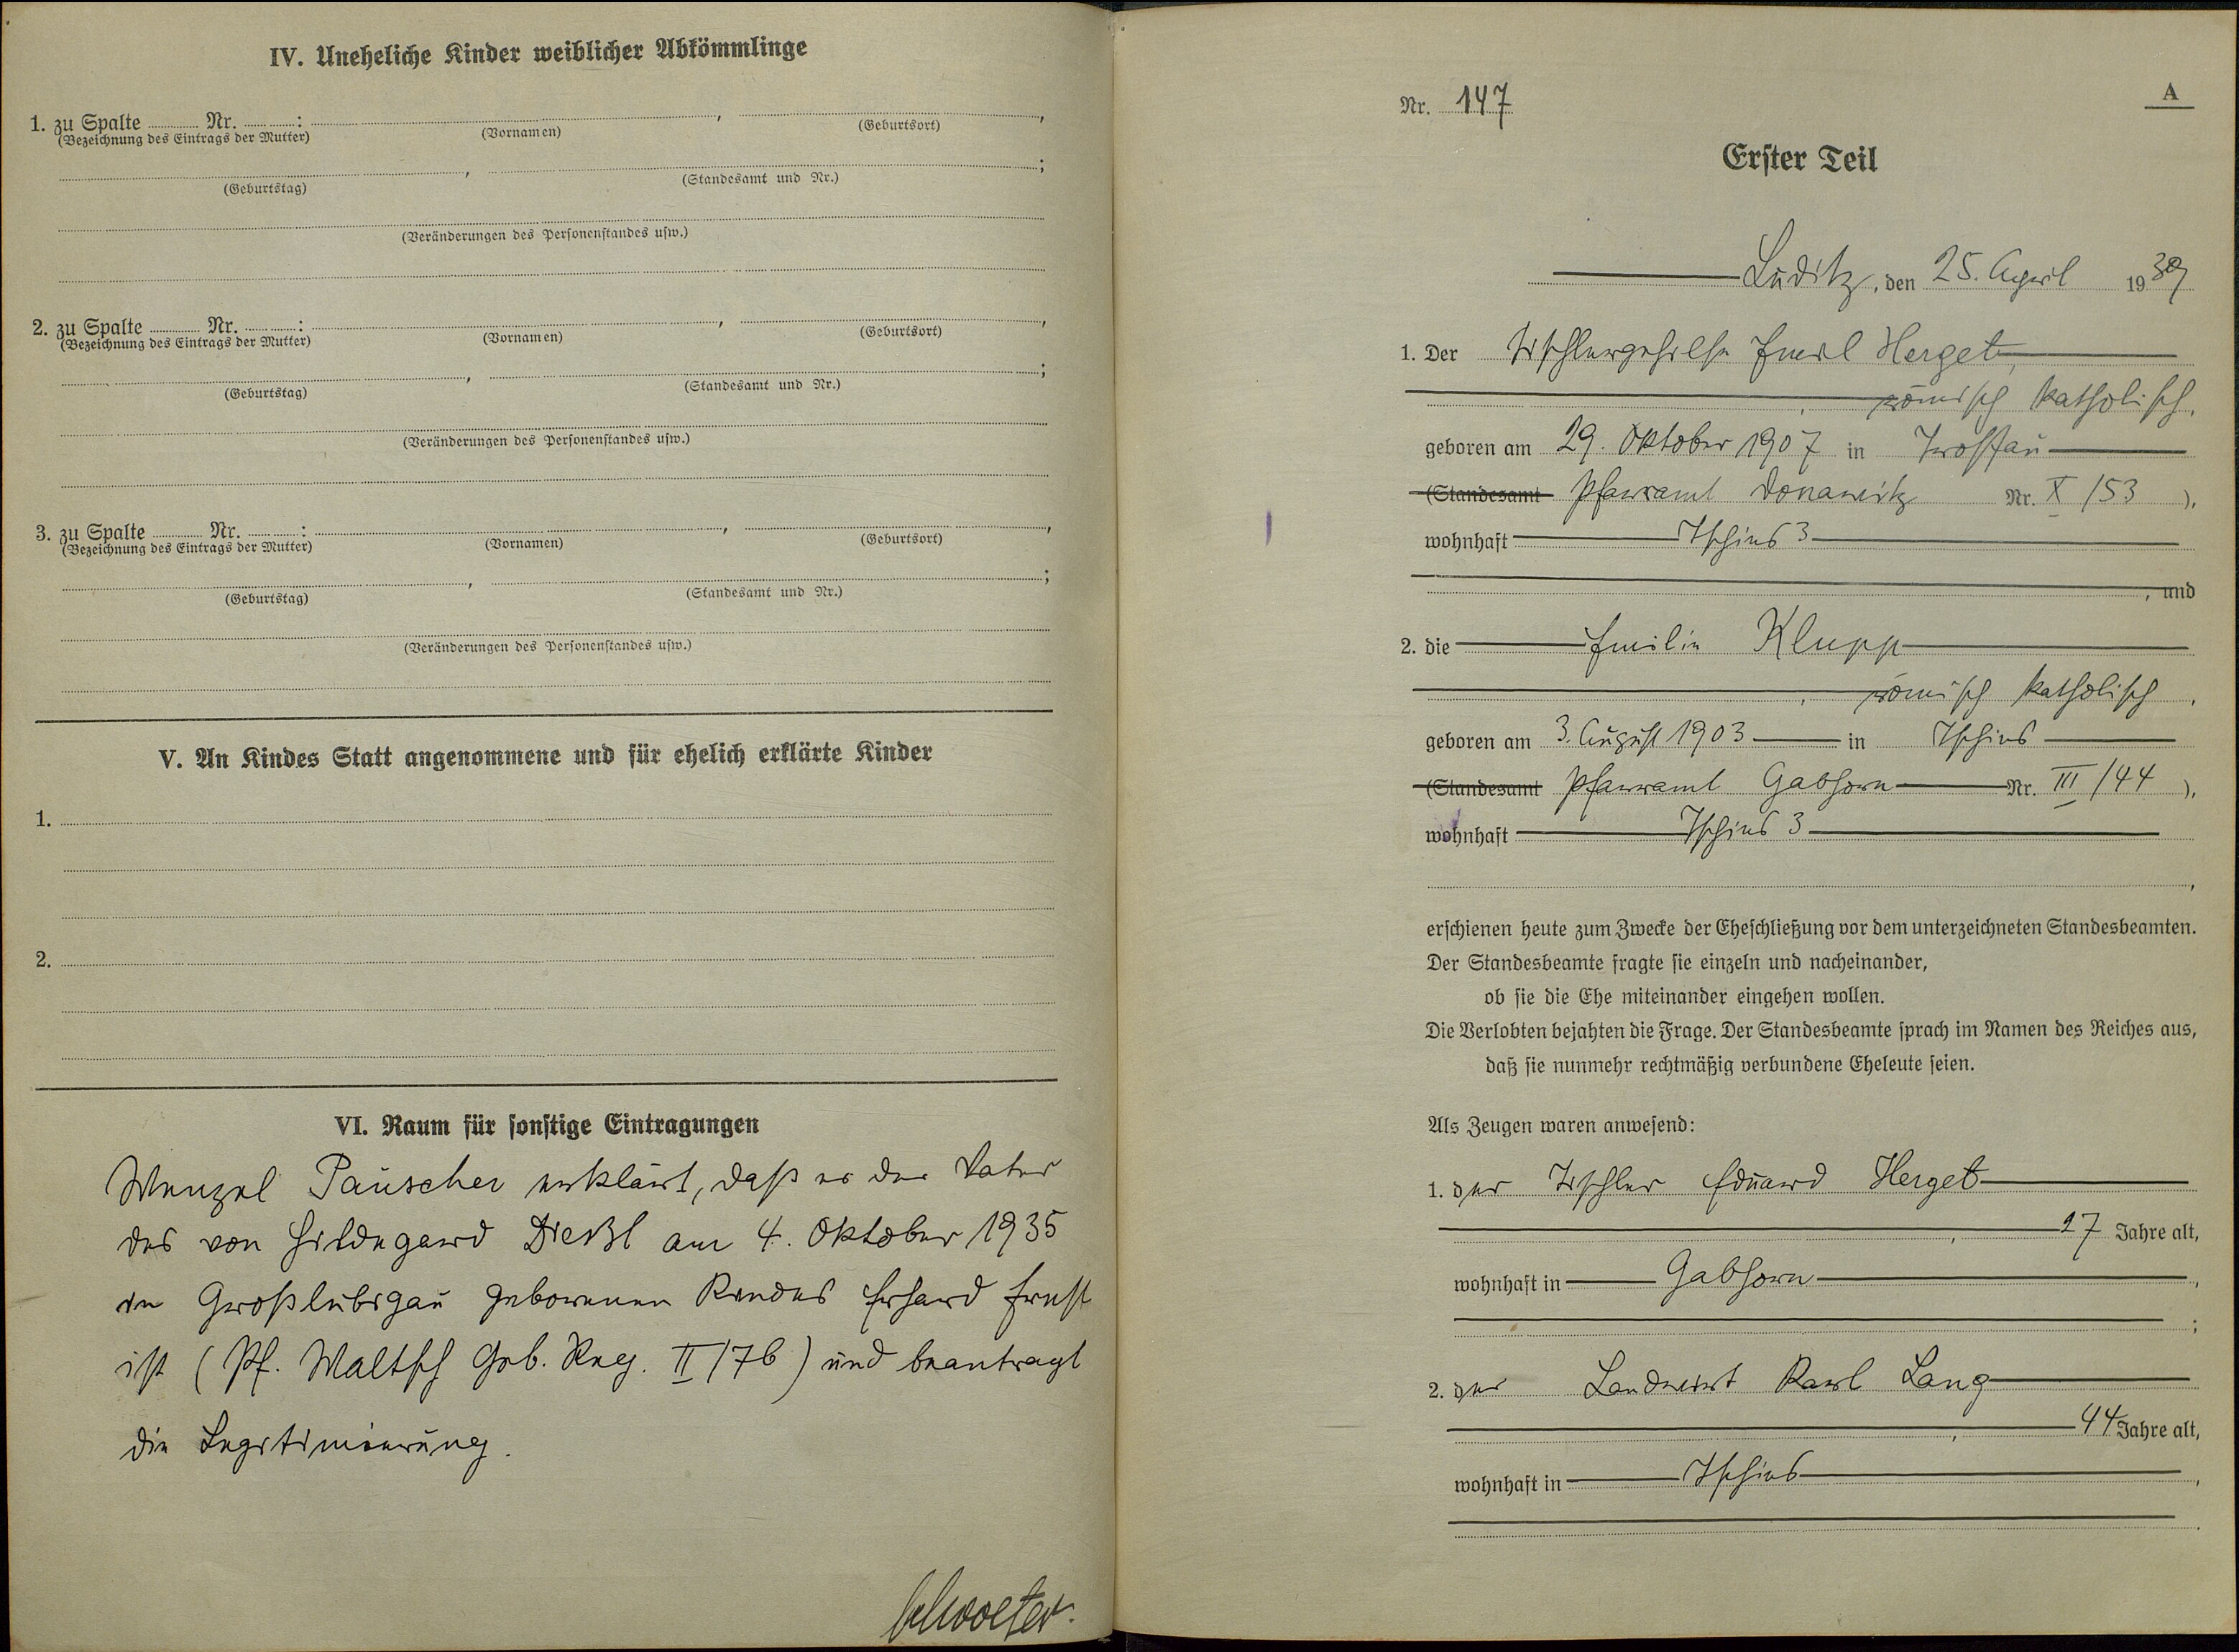 IV. Uneheliche Kinder weiblicher Abkömmlinge
1. zu Spalte Nr. : , ,
(Bezeichnung des Eintrags der Mutter) (Vornamen) (Geburtsort)
, ;
(Geburtstag) (Standesamt und Nr.)
(Veränderungen des Personenstandes usw.)
2. zu Spalte Nr. : , ,
(Bezeichnung des Eintrags der Mutter) (Vornamen) (Geburtsort)
, ;
(Geburtstag) (Standesamt und Nr.)
(Veränderungen des Personenstandes usw.)
3. zu Spalte Nr. : , ,
(Bezeichnung des Eintrags der Mutter) (Vornamen) (Geburtsort)
, ;
(Geburtstag) (Standesamt und Nr.)
(Veränderungen des Personenstandes usw.)
V. An Kindes Statt angenommene und für ehelich erklärte Kinder
1.
2.
VI. Raum für sonstige Eintragungen
Wenzel Pauscher erklärt, daß er der Vater
des von Hildegard Dießl am 4. Oktober 1935
in Großlubigau geborenen Kindes Erhard Ernst
ist (Pf. Waltsch Geb. Reg. II/76) und beantragt
die Legitimierung.
Nr. 147 A
Erster Teil
Luditz, den 25. April 1939
1. Der Tischlergehilfe Emil Herget,
, römisch katholisch,
geboren am 29. Oktober 1907 in
(Standesamt Pfarramt Donawitz Nr. X/53 ),
wohnhaft Tschies 3
, und
2. die Emilie Klupp
, römisch katholisch,
geboren am 3. August 1903 in Tschies
(Standesamt Pfarramt Gabhorn Nr. III/44 ),
wohnhaft Tschies 3
,
erschienen heute zum Zwecke der Eheschließung vor dem unterzeichneten Standesbeamten.
Der Standesbeamte fragte sie einzeln und nacheinander,
ob sie die Ehe miteinander eingehen wollen.
Die Verlobten bejahten die Frage. Der Standesbeamte sprach im Namen des Reiches aus,
daß sie nunmehr rechtmäßig verbundene Eheleute seien.
Als Zeugen waren anwesend:
1. der Tischler Eduard Herget
, 27 Jahre alt,
wohnhaft in Gabhorn ,
;
2. der Landwirt Karl Lang
, 44 Jahre alt,
wohnhaft in Tschies ,
.